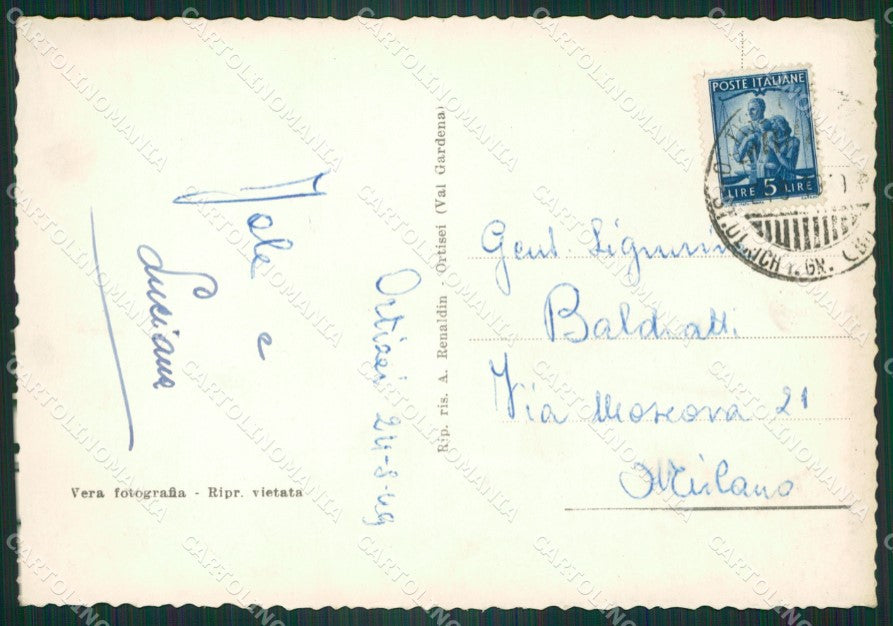 Iole
e
Luciana
Ortisei 24-8-49
Vera fotografia - Ripr. vietata
Rip. ris. A. Renaldin - Ortisei (Val Gardena)
POSTE ITALIANE
LIRE 5 LIRE
ST. ULRICH i. GR.
Gent. Signorina
Baldratti
Via Moscova 21
Milano
CARTOLINOMANIA